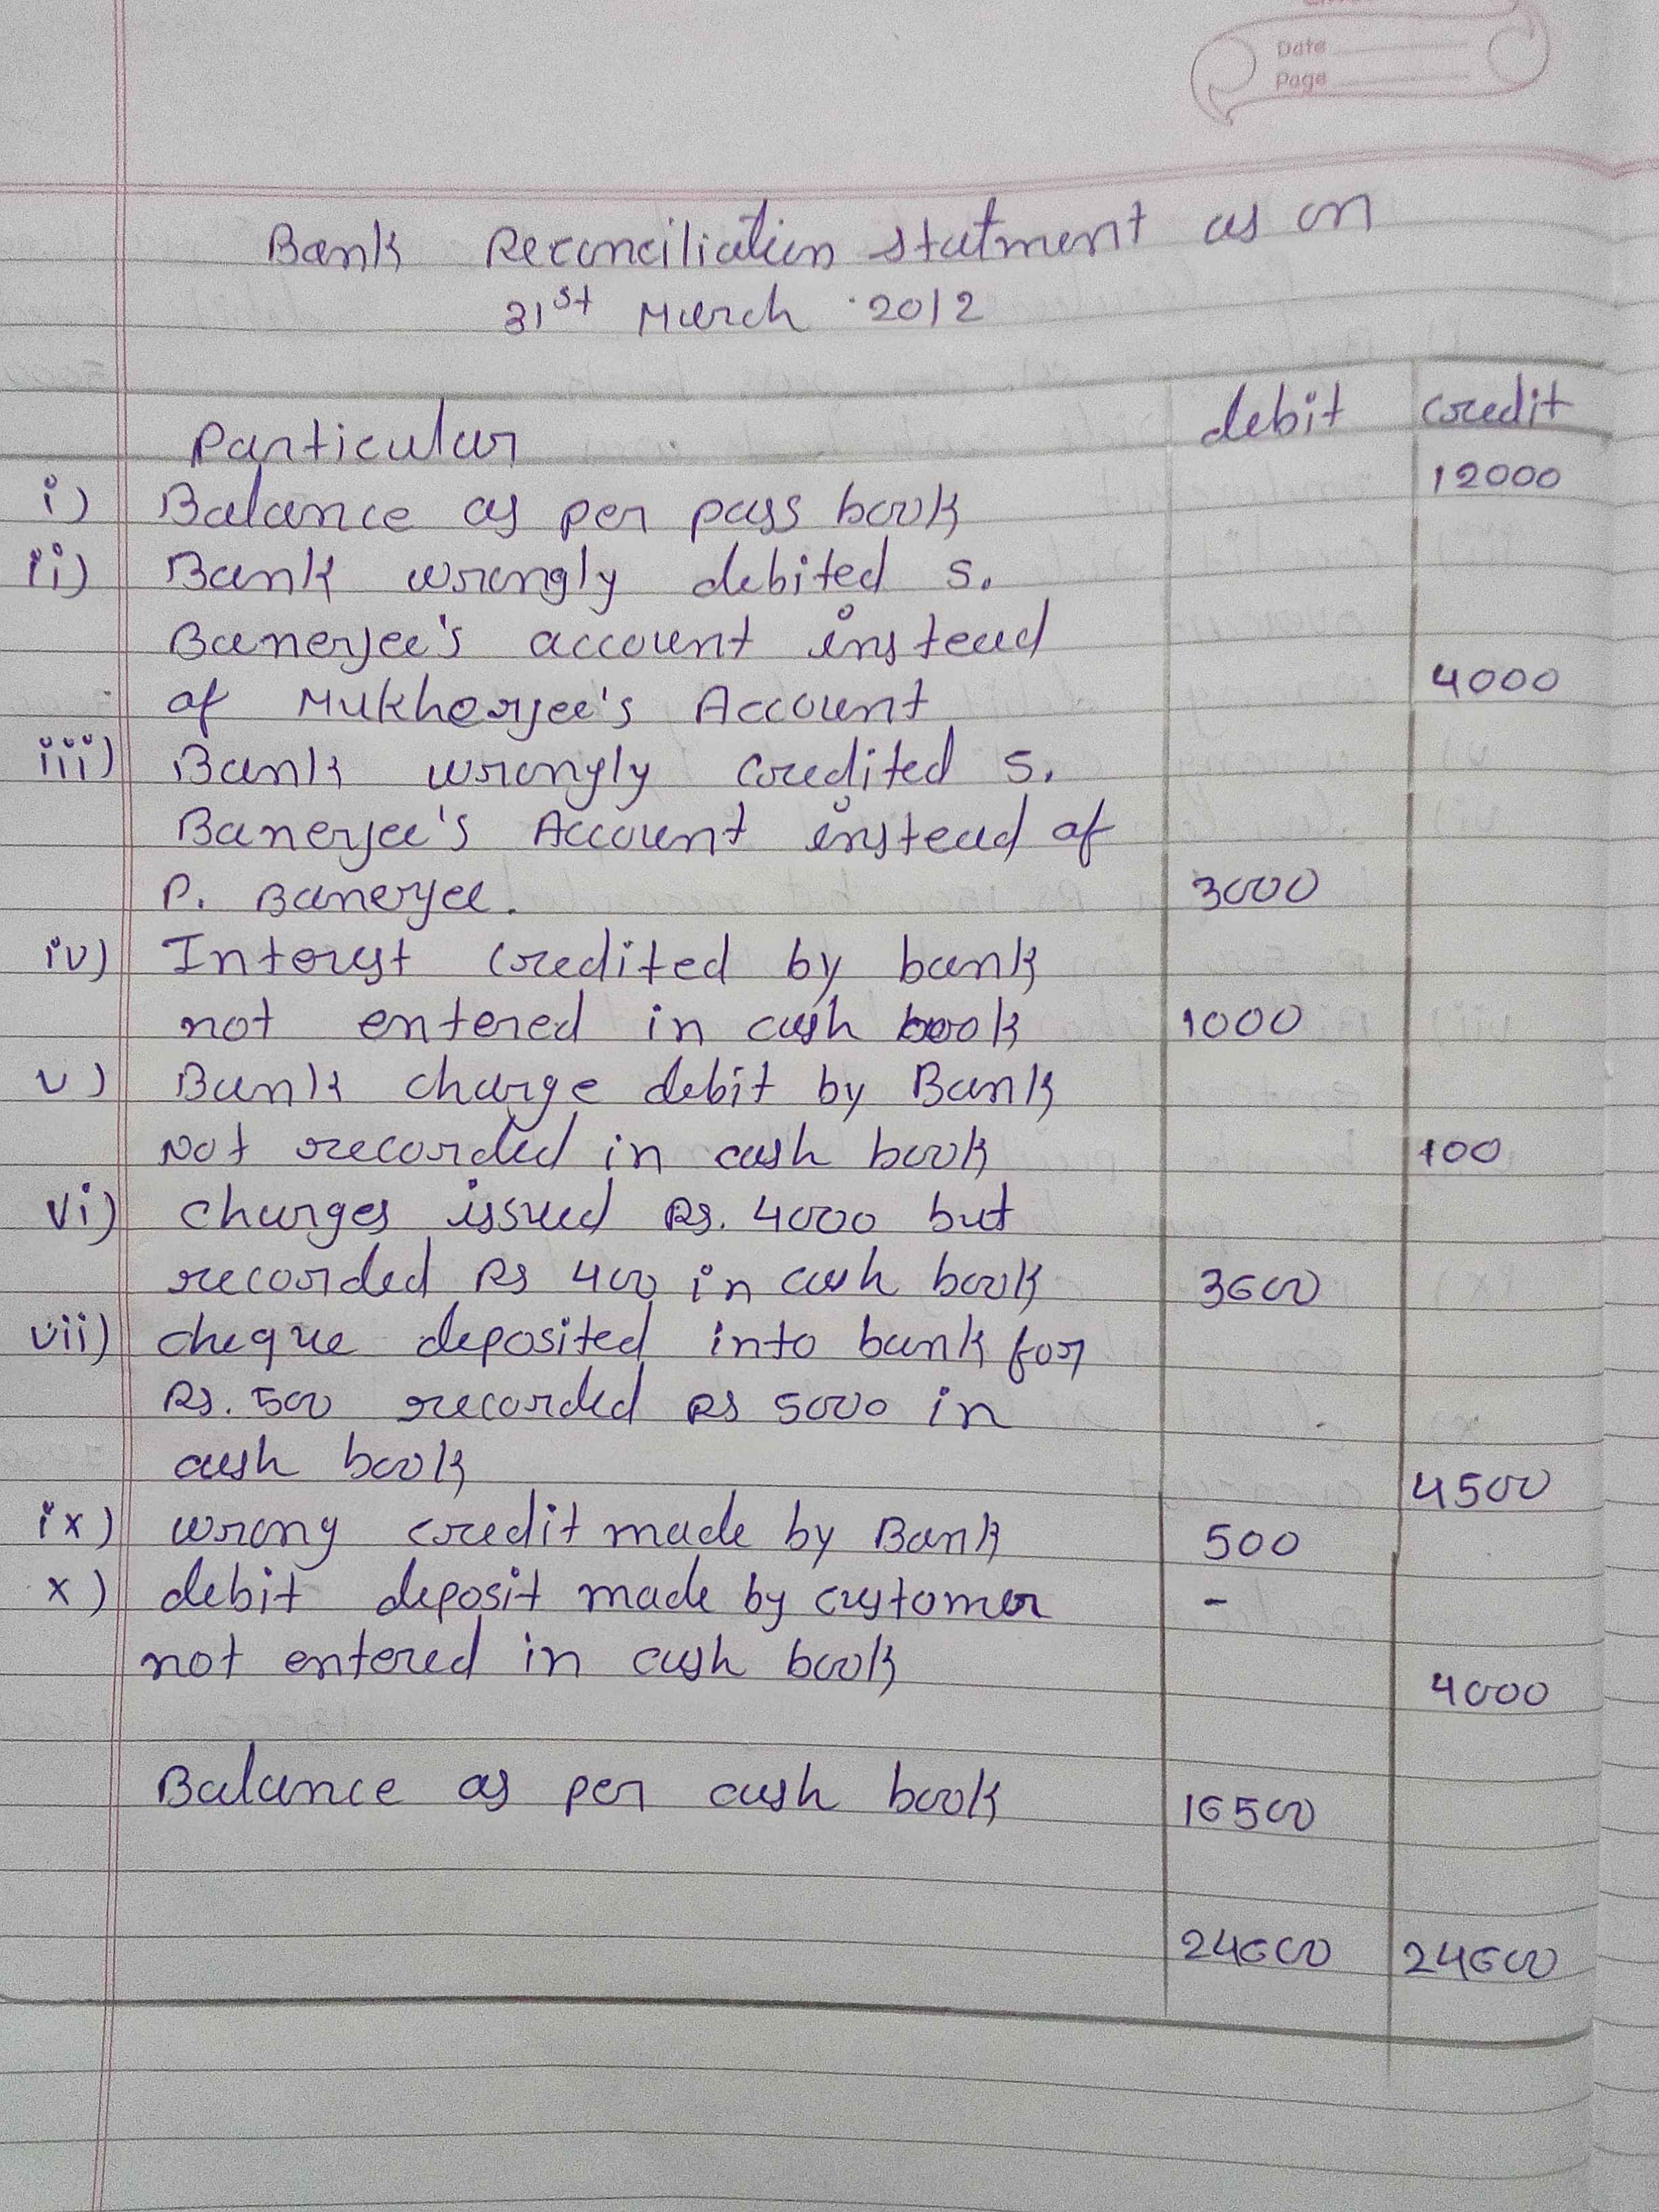 Date
Page
Bank Reconciliation statment as on
31st March 2012
Particular debit credit
i) Balance as per pass book 12000
ii) Bank wrongly debited S.
Banerjee's account instead
of Mukherjee's Account 4000
iii) Bank wrongly credited S.
Banerjee's Account instead of
P. Banerjee. 3000
iv) Interest credited by bank
not entered in cash book 1000
v) Bank charge debit by Bank
Not recorded in cash book 100
vi) charges issued Rs. 4000 but
recorded Rs 400 in cash book 3600
vii) cheque deposited into bank for
Rs. 500 recorded Rs 5000 in
cash book 4500
ix) wrong credit made by Bank 500
x) debit deposit made by customer -
not entered in cash book 4000
Balance as per cash book 16500
24600 24600